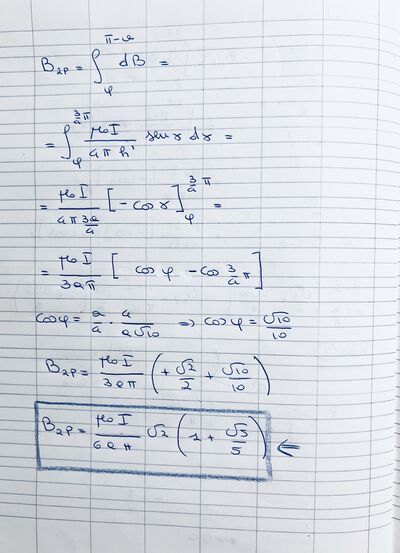 B₂ₚ = ∫_φ^{π-ϑ} dB =
= ∫_φ^{3/4 π} μ₀I / 4πh' senγ dγ =
= μ₀I / 4π 3a/4 [-cosγ]_φ^{3/4 π} =
= μ₀I / 3aπ [cosφ - cos 3/4 π]
cosφ = a/4 · 4/a√10 ⇒ cosφ = √10/10
B₂ₚ = μ₀I / 3aπ (+ √2/2 + √10/10)
B₂ₚ = μ₀I / 6aπ √2 (1 + √5/5) ⇐